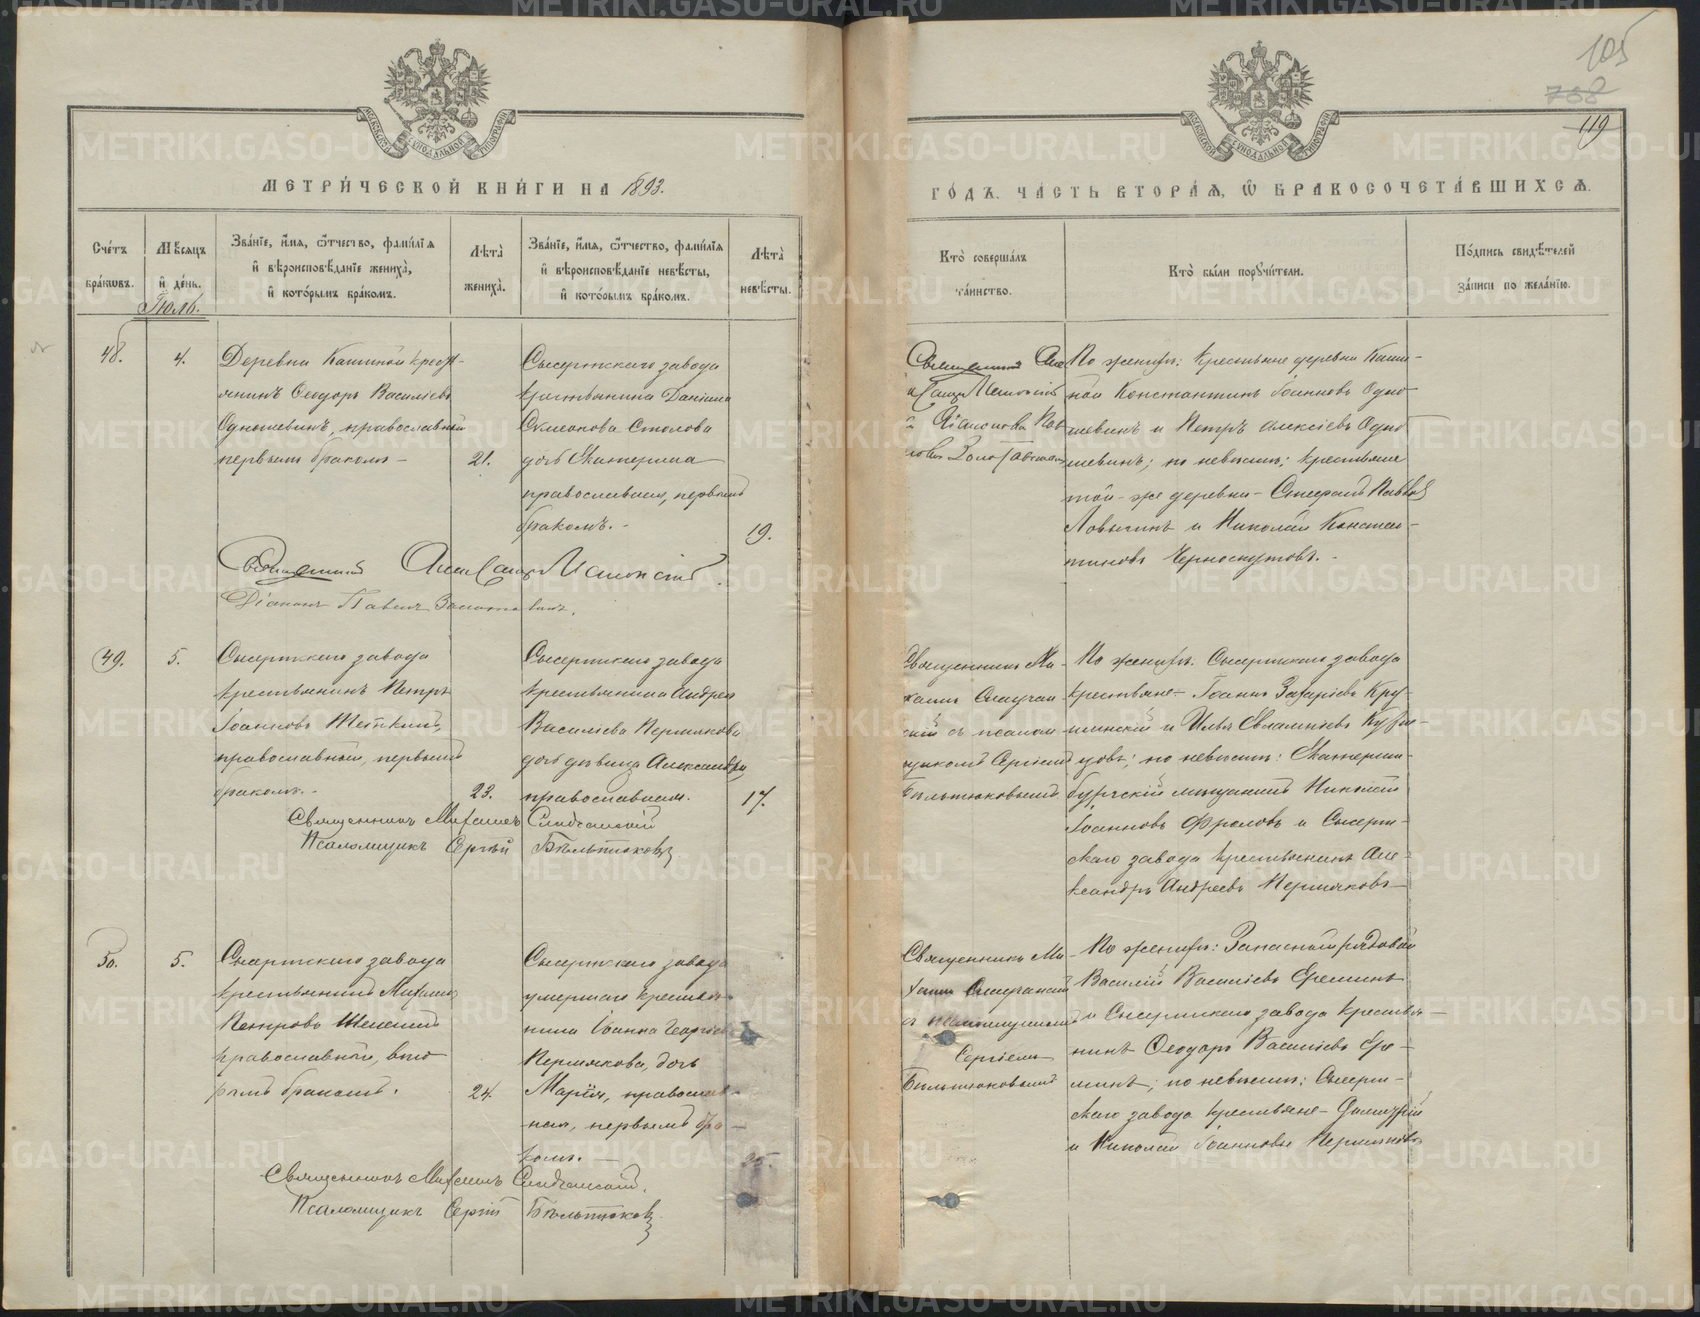 105
788
119
МЕТРИ́ЧЕСКОЙ КНИ́ГИ НА 1893.
ГО́ДЪ. ЧА́СТЬ ВТОРА́Я, Ѡ БРАКОСОЧЕТА́ВШИХСЯ.
Сче́тъ бра́ковъ.
Мѣ́сяцъ и де́нь.
Зва́нїе, и҆́мя, ѻ҆́тчество, фами́лїя и҆ вѣроисповѣ́данїе жениха̀, и҆ кото́рымъ бра́комъ.
Лѣта̀ жениха̀.
Зва́нїе, и҆́мя, ѻ҆́тчество, фами́лїя и҆ вѣроисповѣ́данїе невѣ́сты, и҆ кото́рымъ бра́комъ.
Лѣта̀ невѣ́сты.
Кто̀ соверша́лъ та́инство.
Кто̀ бы́ли порꙋчи́тели.
По́дпись свидѣ́телей за́писи по жела́нїю.
Іюль.
48.
4.
Деревни Кашиной кресть-
янинъ Ѳеодоръ Василіевъ
Одношевинъ, православный
первымъ бракомъ
21.
Сысертскаго завода
крестьянина Даніила
Симеонова Столова
дочь Екатерина
православная, первымъ
бракомъ.
19.
Священникъ
По женихѣ: крестьяне деревни Каши-
ной Константинъ Іоанновъ Одно-
шевинъ и Петръ Алексіевъ Одно
шевинъ; по невѣстѣ: крестьяне
той-же деревни - Стефанъ Павлов
и Николай Констан-
тиновъ Черноскутовъ.
Діаконъ Павелъ
49.
5.
Сысертскаго завода
крестьянинъ Петръ
Іоанновъ
православный, первымъ
бракомъ.
23.
Сысертскаго завода
крестьянина Андрея
Василіева Пермякова
дочь дѣвица Александра
православная.
17.
Священникъ Ми-
съ псалом
щикомъ Сергіемъ
Бѣльтюковымъ
По женихѣ. Сысертскаго завода
крестьяне Іоаннъ Захаріевъ Кру-
шинскій и Илья Евлампіевъ Кузне-
цовъ; по невѣстѣ: Екатерин-
бургскій мѣщанинъ Николай
Іоанновъ Фроловъ и Сысерт-
скаго завода крестьянинъ Але-
ксандръ Андреевъ Пермяковъ
Священникъ Михаилъ
Псаломщикъ Сергій Бѣльтюковъ
50.
5.
Сысертскаго завода
крестьянинъ Михаилъ
Петровъ
православный, вто-
рымъ бракомъ.
24.
Сысертскаго завода
умершаго крестья-
нина Іоанна Георгіева
Пермякова, дочь
Марія, православ-
ная, первымъ бра-
комъ.
Священникъ Ми-
хаилъ
съ псаломщикомъ
Сергіемъ
Бѣльтюковымъ
По женихѣ: Запасный рядовой
Василій Василіевъ Ереминъ
и Сысертскаго завода крестья-
нинъ Ѳеодоръ Василіевъ Ере-
минъ; по невѣстѣ: Сысерт-
скаго завода крестьяне - Димитрій
и Николай Іоанновы Пермяковы
Священникъ Михаилъ
Псаломщикъ Сергій Бѣльтюковъ
METRIKI.GASO-URAL.RU